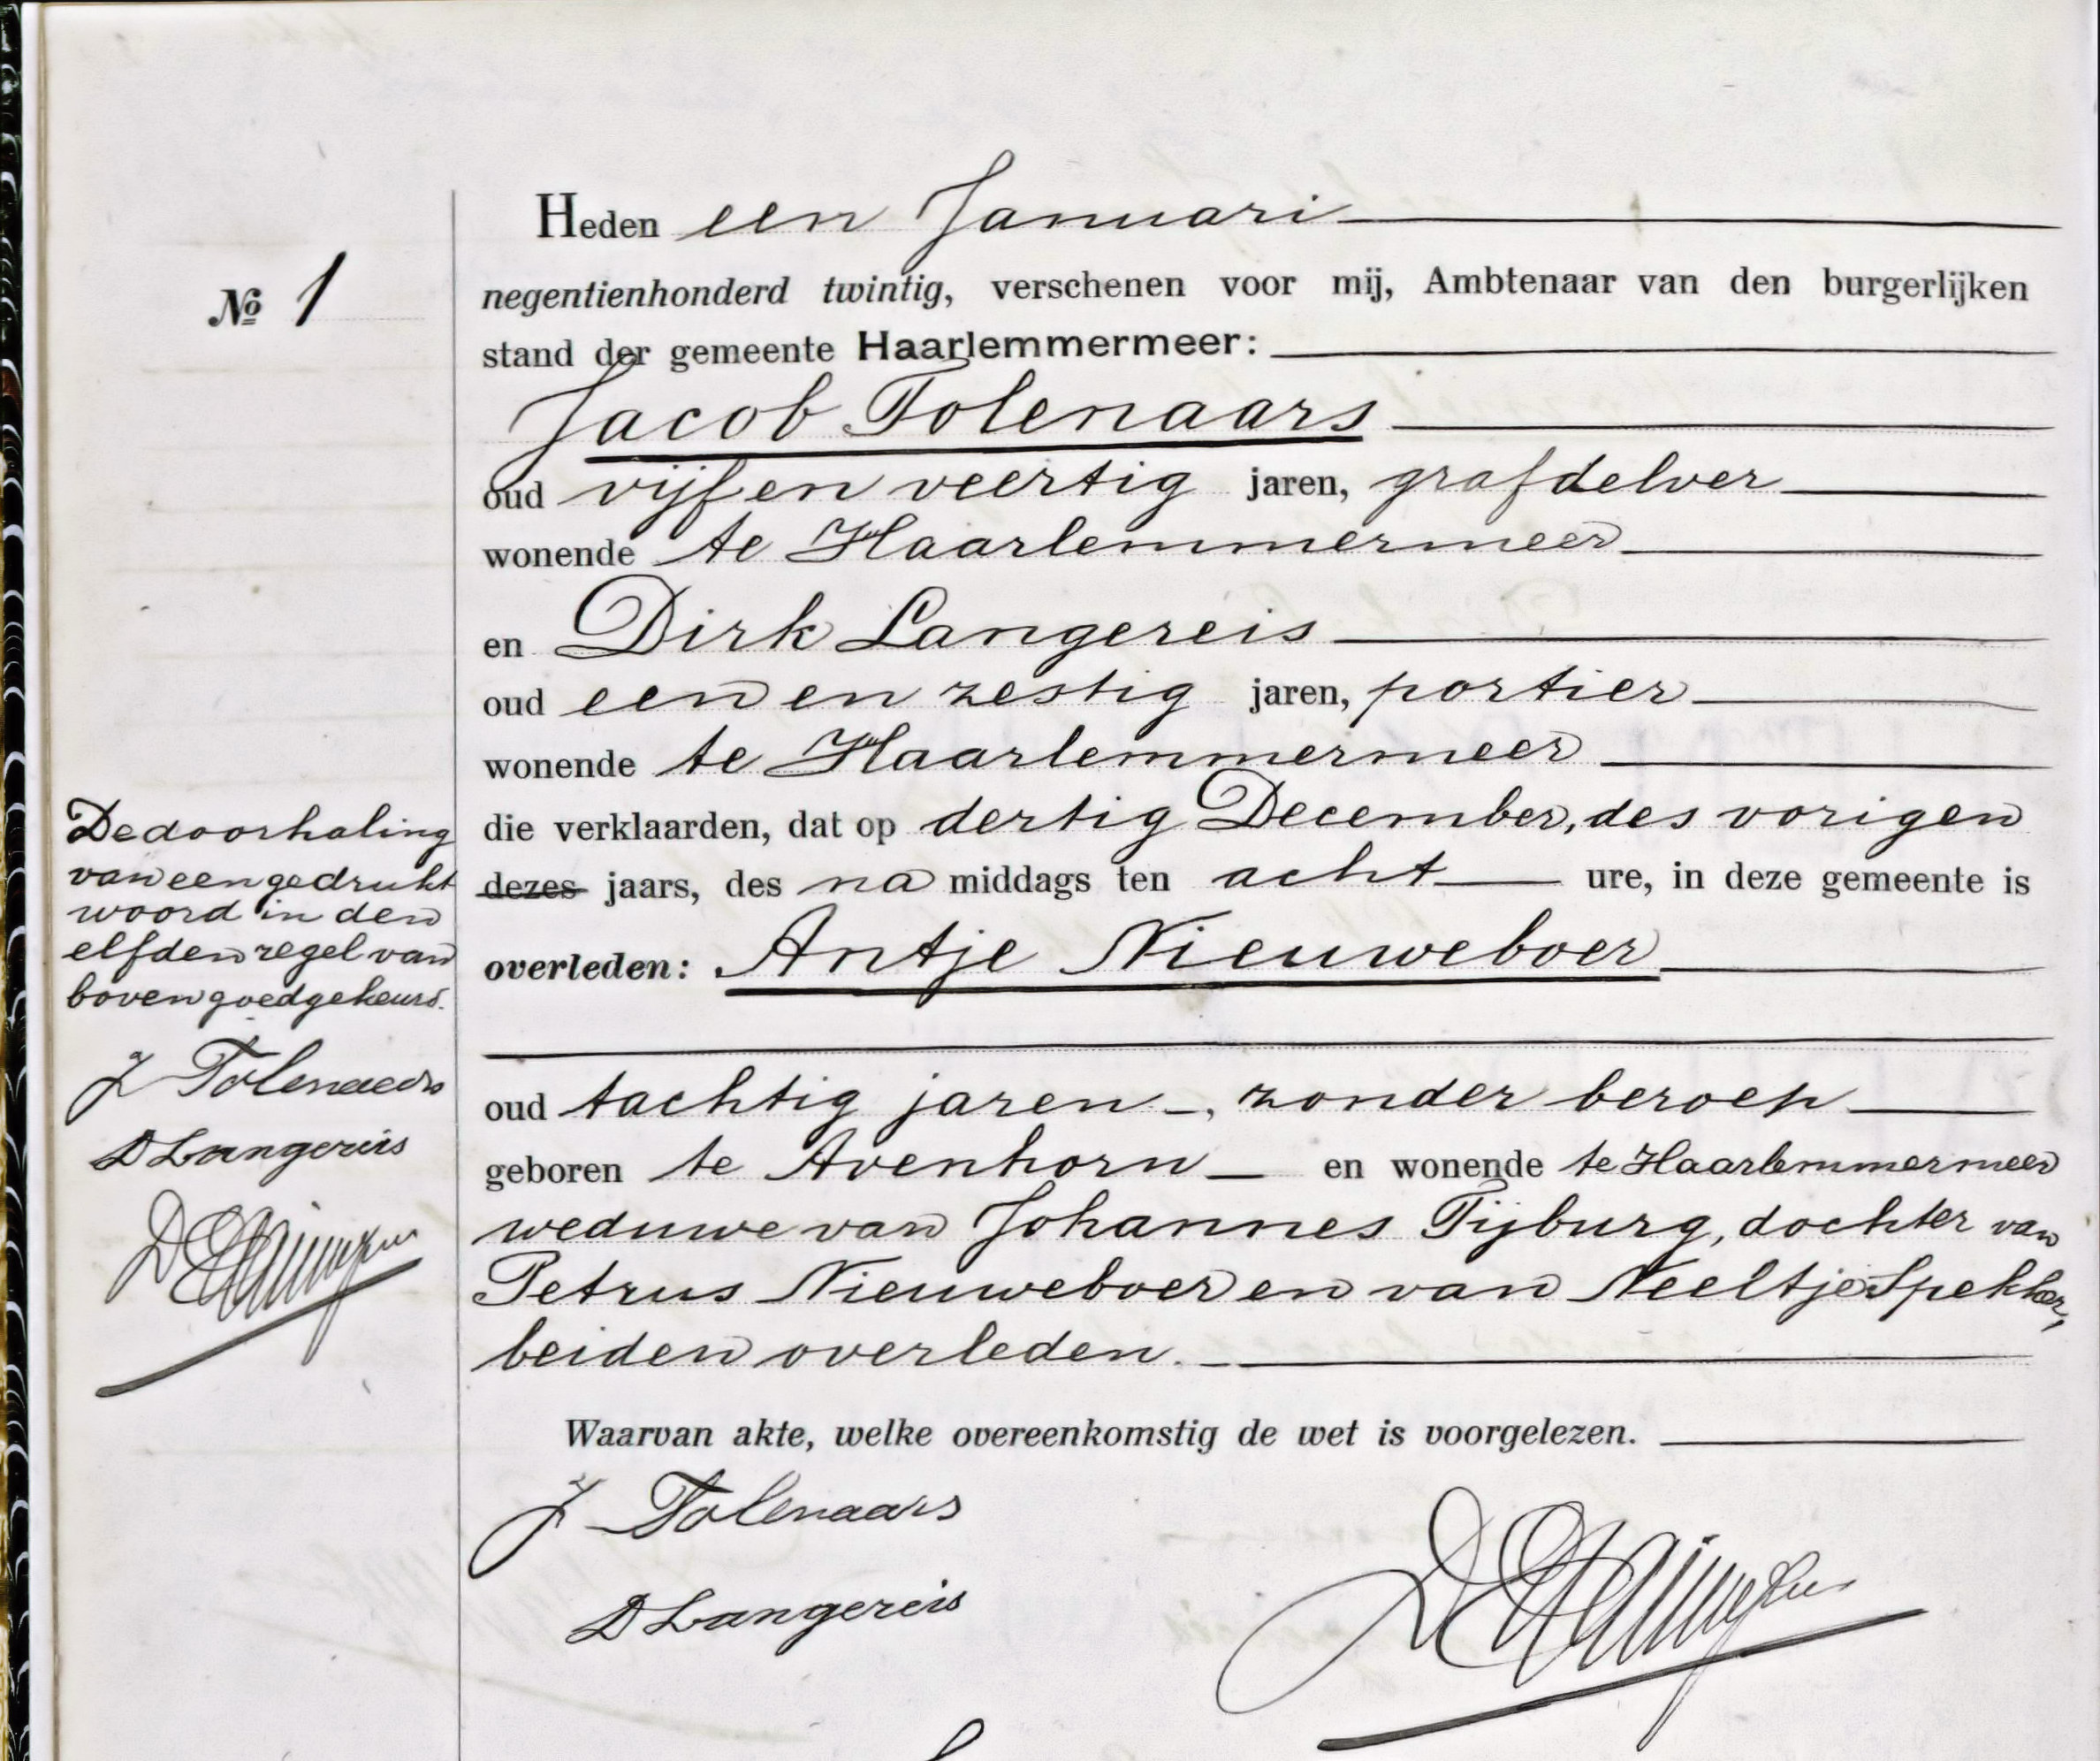 Nº 1
Heden een Januari
negentienhonderd twintig, verschenen voor mij, Ambtenaar van den burgerlijken
stand der gemeente Haarlemmermeer:
Jacob Tolenaars
oud vijf en veertig jaren, grafdelver
wonende te Haarlemmermeer
en Dirk Langereis
oud een en zestig jaren, portier
wonende te Haarlemmermeer
die verklaarden, dat op dertig December, des vorigen
dezes jaars, des na middags ten acht ure, in deze gemeente is
overleden: Antje Nieuweboer
oud tachtig jaren, zonder beroep
geboren te Avenhorn en wonende te Haarlemmermeer
weduwe van Johannes Tijburg, dochter van
Petrus Nieuweboer en van Neeltje Spekker,
beiden overleden.
Waarvan akte, welke overeenkomstig de wet is voorgelezen.
J Tolenaars
D Langereis
De doorhaling
van een gedrukt
woord in den
elfden regel van
boven goedgekeurd.
J Tolenaars
D Langereis